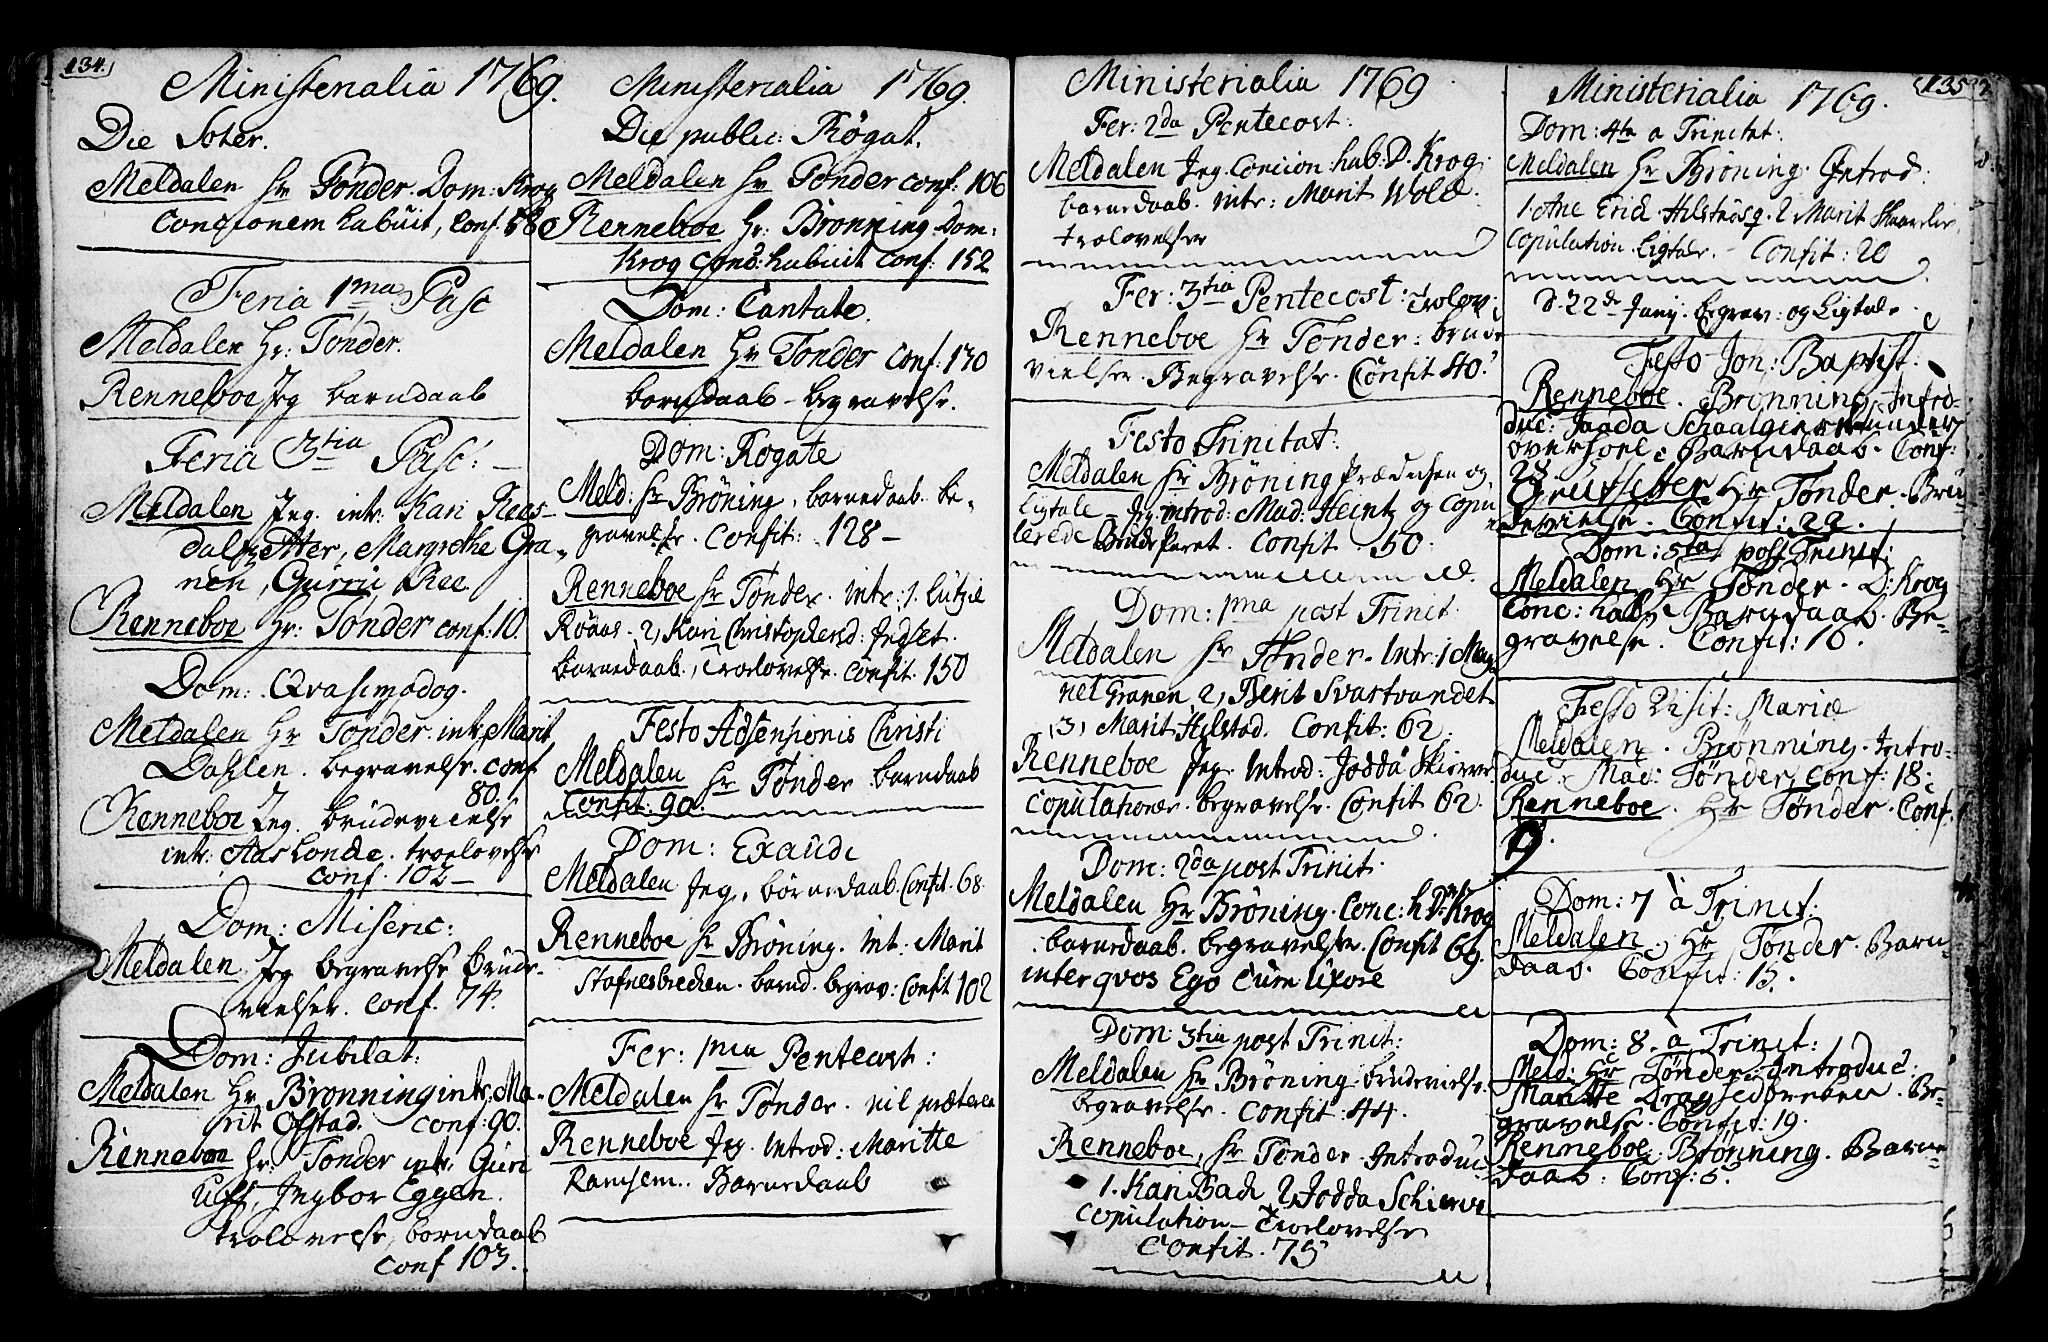 134.
Ministerialia 1769.
Die Soter.
Meldalen Hr Tønder. Dom: Krog
Concionem habuit, Conf. 580
Feria 1ma Pasc
Meldalen Hr: Tønder.
Renneboe Jeg barndaab
Feria 3tia Pasc: —
Meldalen Jeg. intr: Kari Rees-
dals Ætter, Margrethe Gra-
nen, Gurrii Ree.
Renneboe Hr: Tønder conf: 10.
Dom: Qvasimodog.
Meldalen Hr Tønder. intr: Marit
Dahlen. begravelse. conf
80.
Renneboe Jeg. brudevielse
intr: Aas Londe. troelovelse
conf. 102 —
Dom: Miseric:
Meldalen Jeg begravelse Brude-
vielser. conf. 74.
Dom: Jubilat:
Meldalen Hr Brønning intr: Ma-
rit Ofstad. conf: 90.
Renneboe Hr: Tønder intr: Guri
Uff, Jngbor Eggen.
trolovelse, barndaab
conf 103.
Ministerialia 1769.
Die public: Rogat.
Meldalen Hr Tønder conf: 106
Renneboe Hr: Brønning. Dom:
Krog Conc: habuit conf: 152
Dom: Cantate.
Meldalen Hr Tønder conf. 130
barndaab – begravelse.
Dom: Rogate
Meld: Hr Brøning, barnedaab. be-
gravelse. Confit: 128 –
Renneboe Hr Tønder. intr: 1. Lützie
Røaas. 2, Kari Christophersd: Jndset.
barnedaab, Troelovelse. Confit. 150
Festo Adsensionis Christi
Meldalen Hr Tønder barndaab
Confit: 90.
Dom: Exaudi
Meldalen Jeg, børnedaab. Confit. 68.
Renneboe Hr Brøning. Int: Marit
Stafnesbrecken. barnd. begrav: Confit 102
Fer: 1ma Pentecost:
Meldalen Hr Tønder. nil præterea
Renneboe Jeg. Introd: Maritte
Ramsem.. Barnedaab
Ministerialia 1769
Fer: 2da Pentecost:
Meldalen Jeg. Concion: hab: D. Krog.
barnedaab. intr: Marit Wold.
trolovelser
Fer: 3tia Pentecost: Trolov:
Renneboe Hr Tønder: brude
vielser. Begravelse. Confit 40.
Festo Trinitat:
Meldalen Hr Brøning Prædicken og
Ligtale – Jeg introd: Mad: Heintz og Copu
lerede Brude Paret. Confit. 50.
Dom: 1ma post Trinit.
Meldalen Hr Tønder. Intr: 1 Mag-
net Granen, 2, Berit Svartvandet
3, Marit Hilstad. Confit: 62.
Renneboe Jeg. Introd: Jodda Skierve
Copulationer. begravelse. Confit 62.
Dom: 2da post Trinit.
Meldalen Hr Brøning. Conc: h Dn Krog
barnedaab. begravelse. Confit 69.
inter qvos Ego Cum Uxore
Dom: 3tia post Trinit:
Meldalen Hr Brøning. brudevielse.
begravelse. Confit: 44.
Renneboe, Hr Tønder. Introduc:
1. Kari Bach 2, Jodda Schierve
Copulation – Troelovelse
Confit. 75
135
Ministerialia 1769.
Dom: 4ta a Trinitat:
Meldalen Hr Brøning. Introd:
1. Ane Erid. Hilstads. 2 Marit Skaarlie,
Copulation. Ligtale. – Confit: 20
d. 22de Junij. begrav: og Ligtale
Festo Jon: Baptist:
Renneboe. Brønning. Introd-
duc: Jaada
overhøel. Barndaab. Conf:
28
Grutsetter Hr Tønder. Bru
devielse. Confit: 22.
Dom: 5ta post Trinit:
Meldalen Hr Tønder. D: Krog
Conc: hab: Barndaab. Be-
gravelse. Confit: 16.
Festo Visit: Mariæ
Meldalen. Brønning. Intro-
duc: Mad: Tønder, Conf: 18:
Renneboe. Hr Tønder. Conf.
19.
Dom: 7 à Trinit:
Meldalen. Hr Tønder. Barn-
daab. Confit: 15.
Dom: 8. à Trinit:
Meld: Hr Tønder. Introduc:
Maritte Dragsedbrecken. Be-
gravelse. Confit: 19.
Renneboe. Brønning. Barne-
daab: Conf: 5.